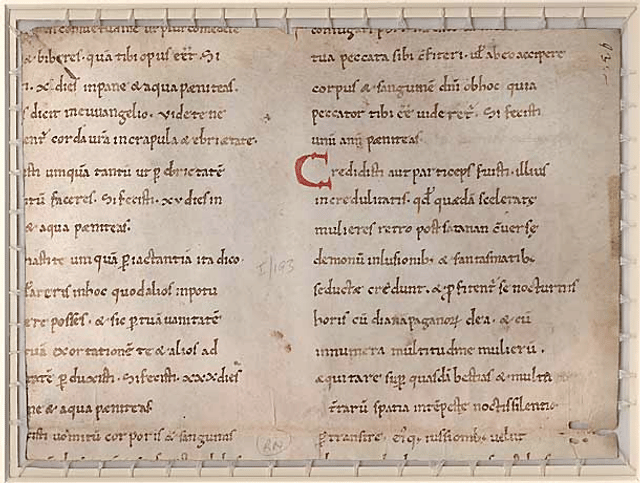 & biberes. quā tibi opus eēt. Si
x. dies in pane & aqua pæniteas.
dicit in euuangelio. videte ne
corda ura in crapula & ebrietate.
umquā tantū ut p ebrietatē
faceres. Si fecisti. xv dies in
& aqua pæniteas.
umquā p iactantia ita dico
in hoc quod alios in potu
ere posses. & sic p tuā uanitatē
tuā exortationē te & alios ad
tatē pduxisti. Si fecisti. xxx dies
& aqua pæniteas
uomitū corporis & sanguinis
tua peccata sibi cfiteri. ut ab eo accipere
corpus & sanguinē dni ob hoc quia
peccator tibi eē uideret. Si fecisti
unū annū pæniteas.
Credidisti aut particeps fuisti illius
incredulitatis. qd quædā sceleratę
mulieres retro post satanan cuersę
demonū inlusionib. & fantasmatib.
seductæ credunt. & pfitent se nocturnis
horis cū diana paganoꝝ dea. & cū
innumera multitudine mulierū.
æquitare sup quasdā bestias & multa
trarū spatia intēpestę noctis silentio
ptransire. eiꝗ. iussionib. uelut
I/193